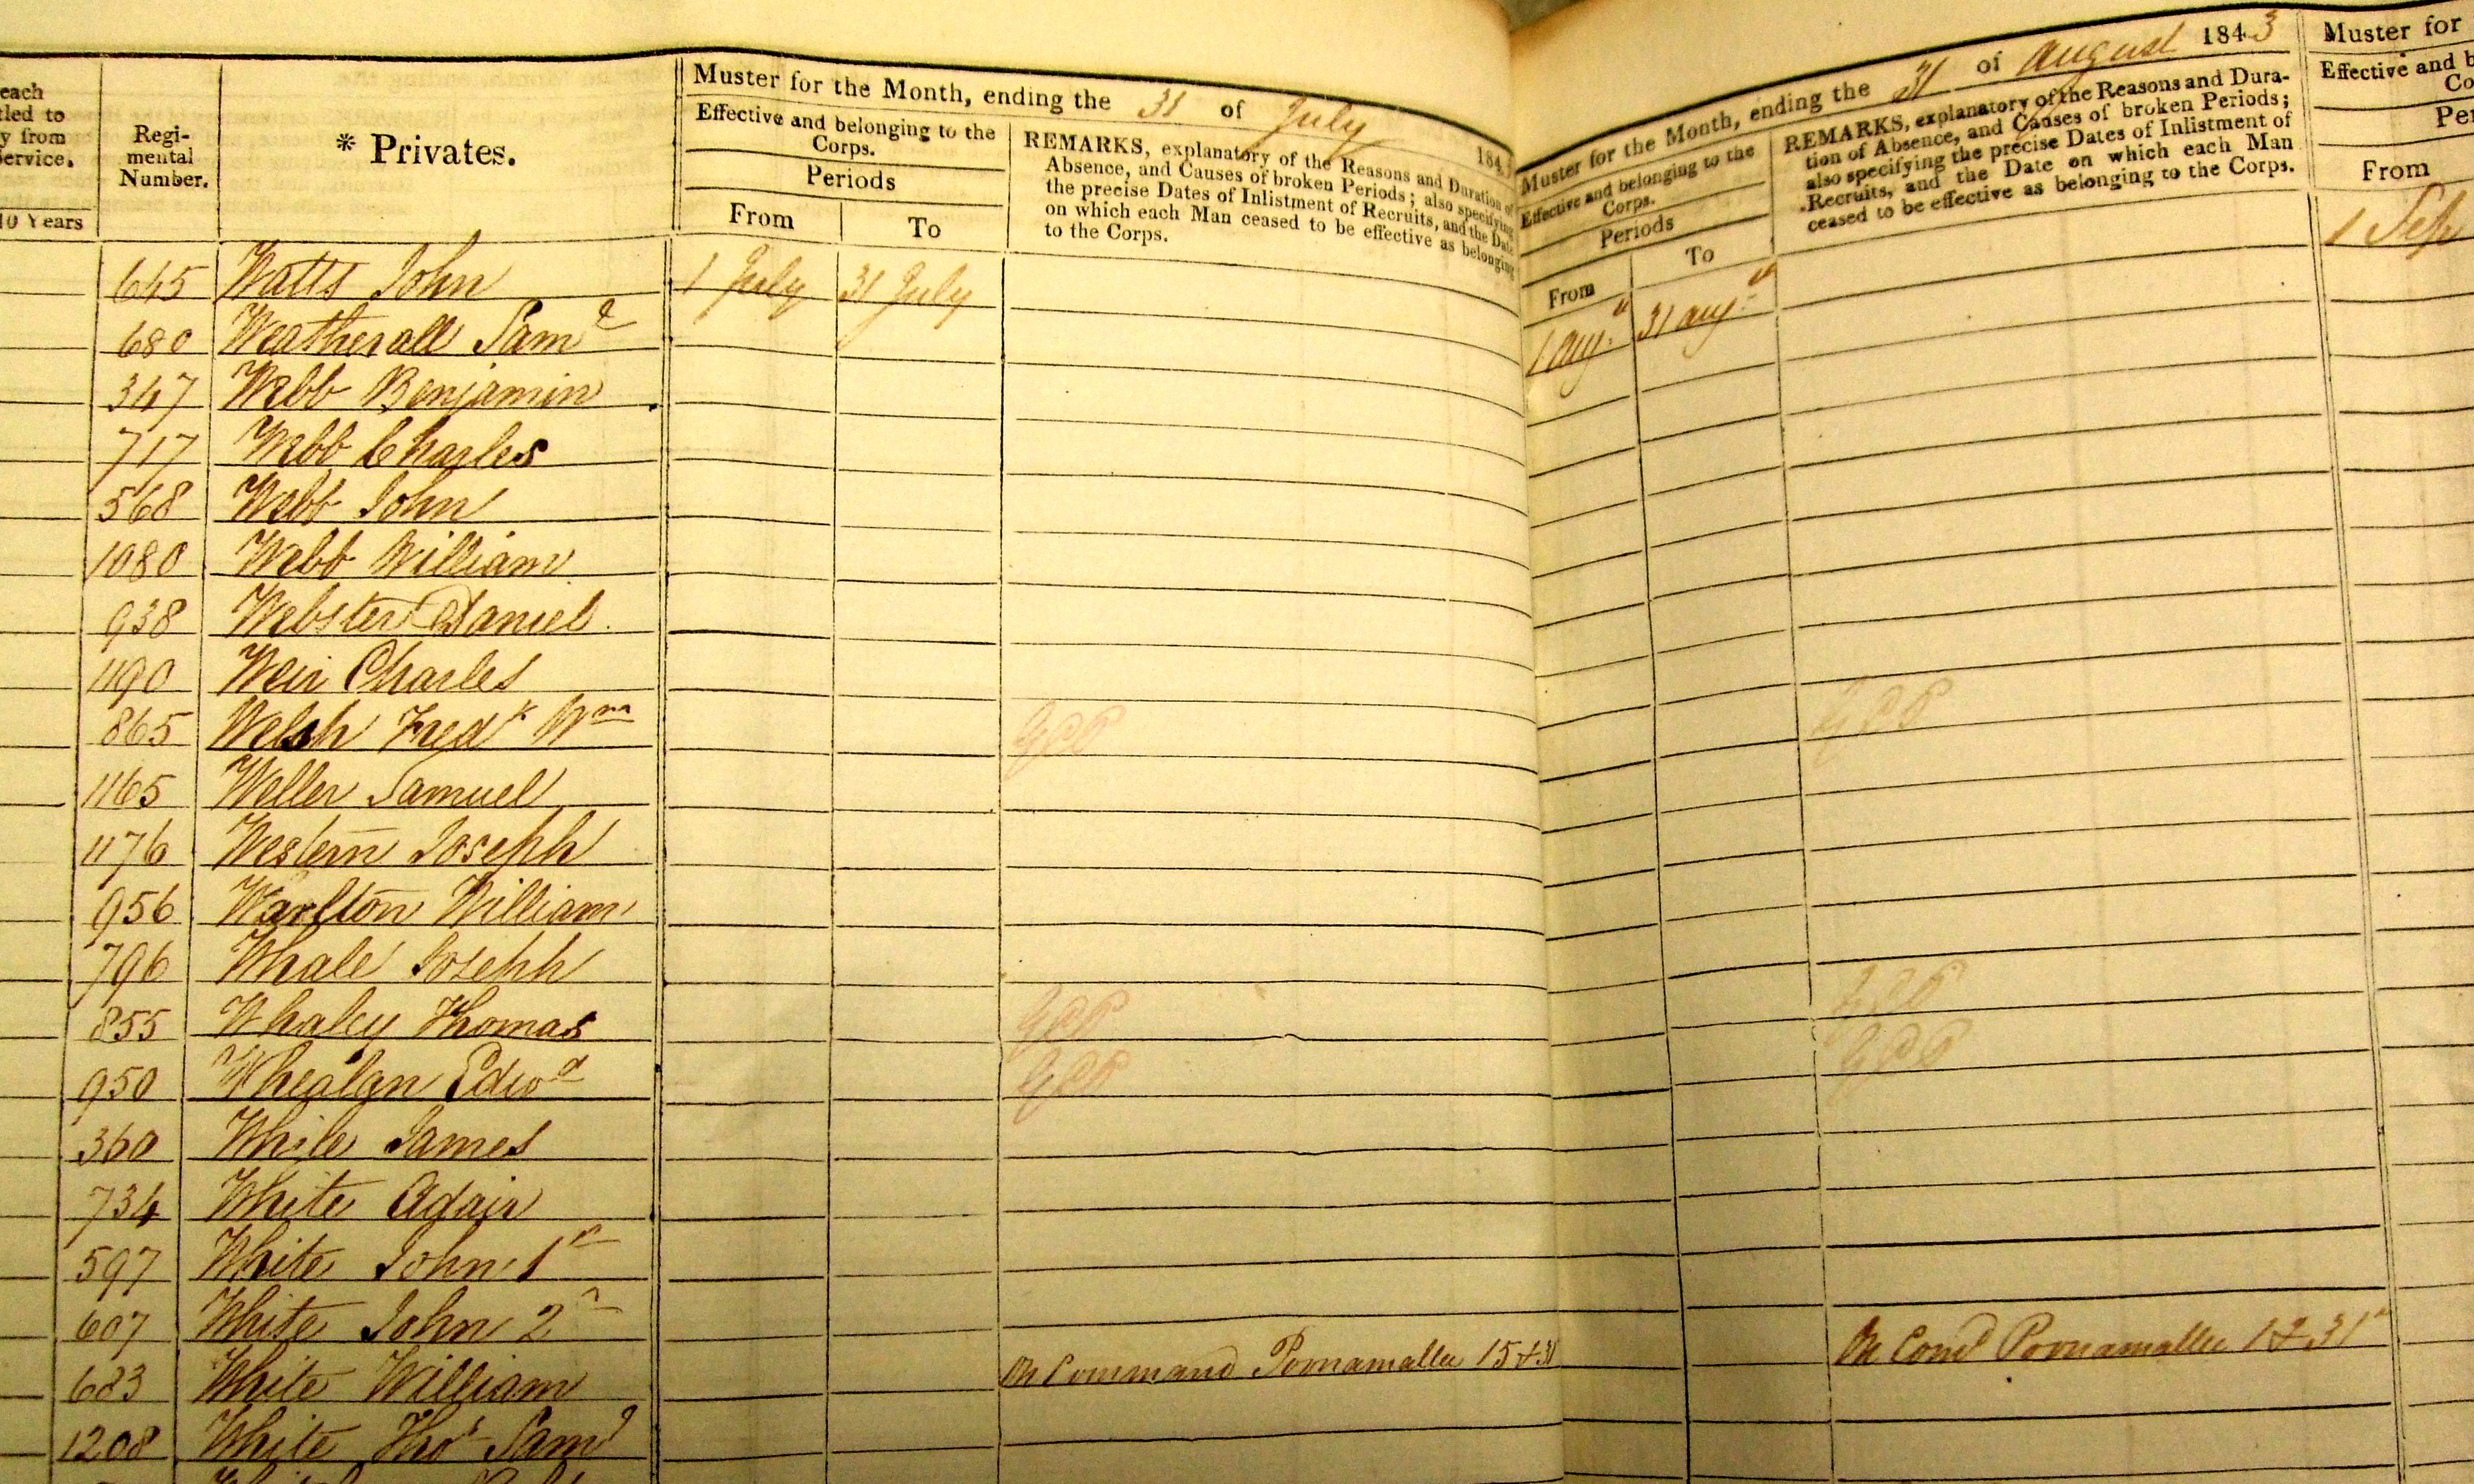 each
tled to
y from
Service.
10 Years
Regi-
mental
Number.
* Privates.
Muster for the Month, ending the 31 of July 184
Effective and belonging to the
Corps.
Periods
From
To
REMARKS, explanatory of the Reasons and Duration of
Absence, and Causes of broken Periods; also specifying
the precise Dates of Inlistment of Recruits, and the Date
on which each Man ceased to be effective as belonging
to the Corps.
Muster for the Month, ending the 31 of August 1843
Effective and belonging to the
Corps.
Periods
From
To
REMARKS, explanatory of the Reasons and Dura-
tion of Absence, and Causes of broken Periods;
also specifying the precise Dates of Inlistment of
Recruits, and the Date on which each Man
ceased to be effective as belonging to the Corps.
Muster for
Effective and b
Co
Per
From
645 Watts John 1 July 31 July 1 Augt 31 Augt 1 Sep
680 Weatherall Saml
347 Webb Benjamin
717 Webb Charles
568 Webb John
1080 Webb William
938 Webster Daniel
1190 Weir Charles
865 Welsh Fredk Wm
1165 Weller Samuel
1176 Western Joseph
956 William
796 Whale Joseph
855 Whaley Thomas
950 Whealan Edwd
360 While James
734 White Adair
597 White John 1st
607 White John 2
683 White William On Command Poonamallee 15 & 31 On Comd Poonamallee 1 & 31
1208 White Thos Saml